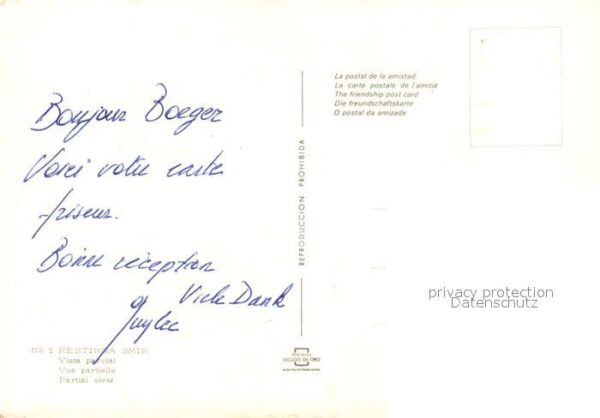 Bonjour Boeger
Voici votre carte
friseur.
Bonne réception
Viele Dank
La postal de la amistad
La carte postale de l'amitié
The friendship post card
Die freundschaftskarte
O postal da amizade
REPRODUCCION PROHIBIDA
privacy protection
Datenschutz
Nº 1 RESTINGA SMIR
Vista parcial
Vue partielle
Partial view
POSTALES
ESCUDO DE ORO